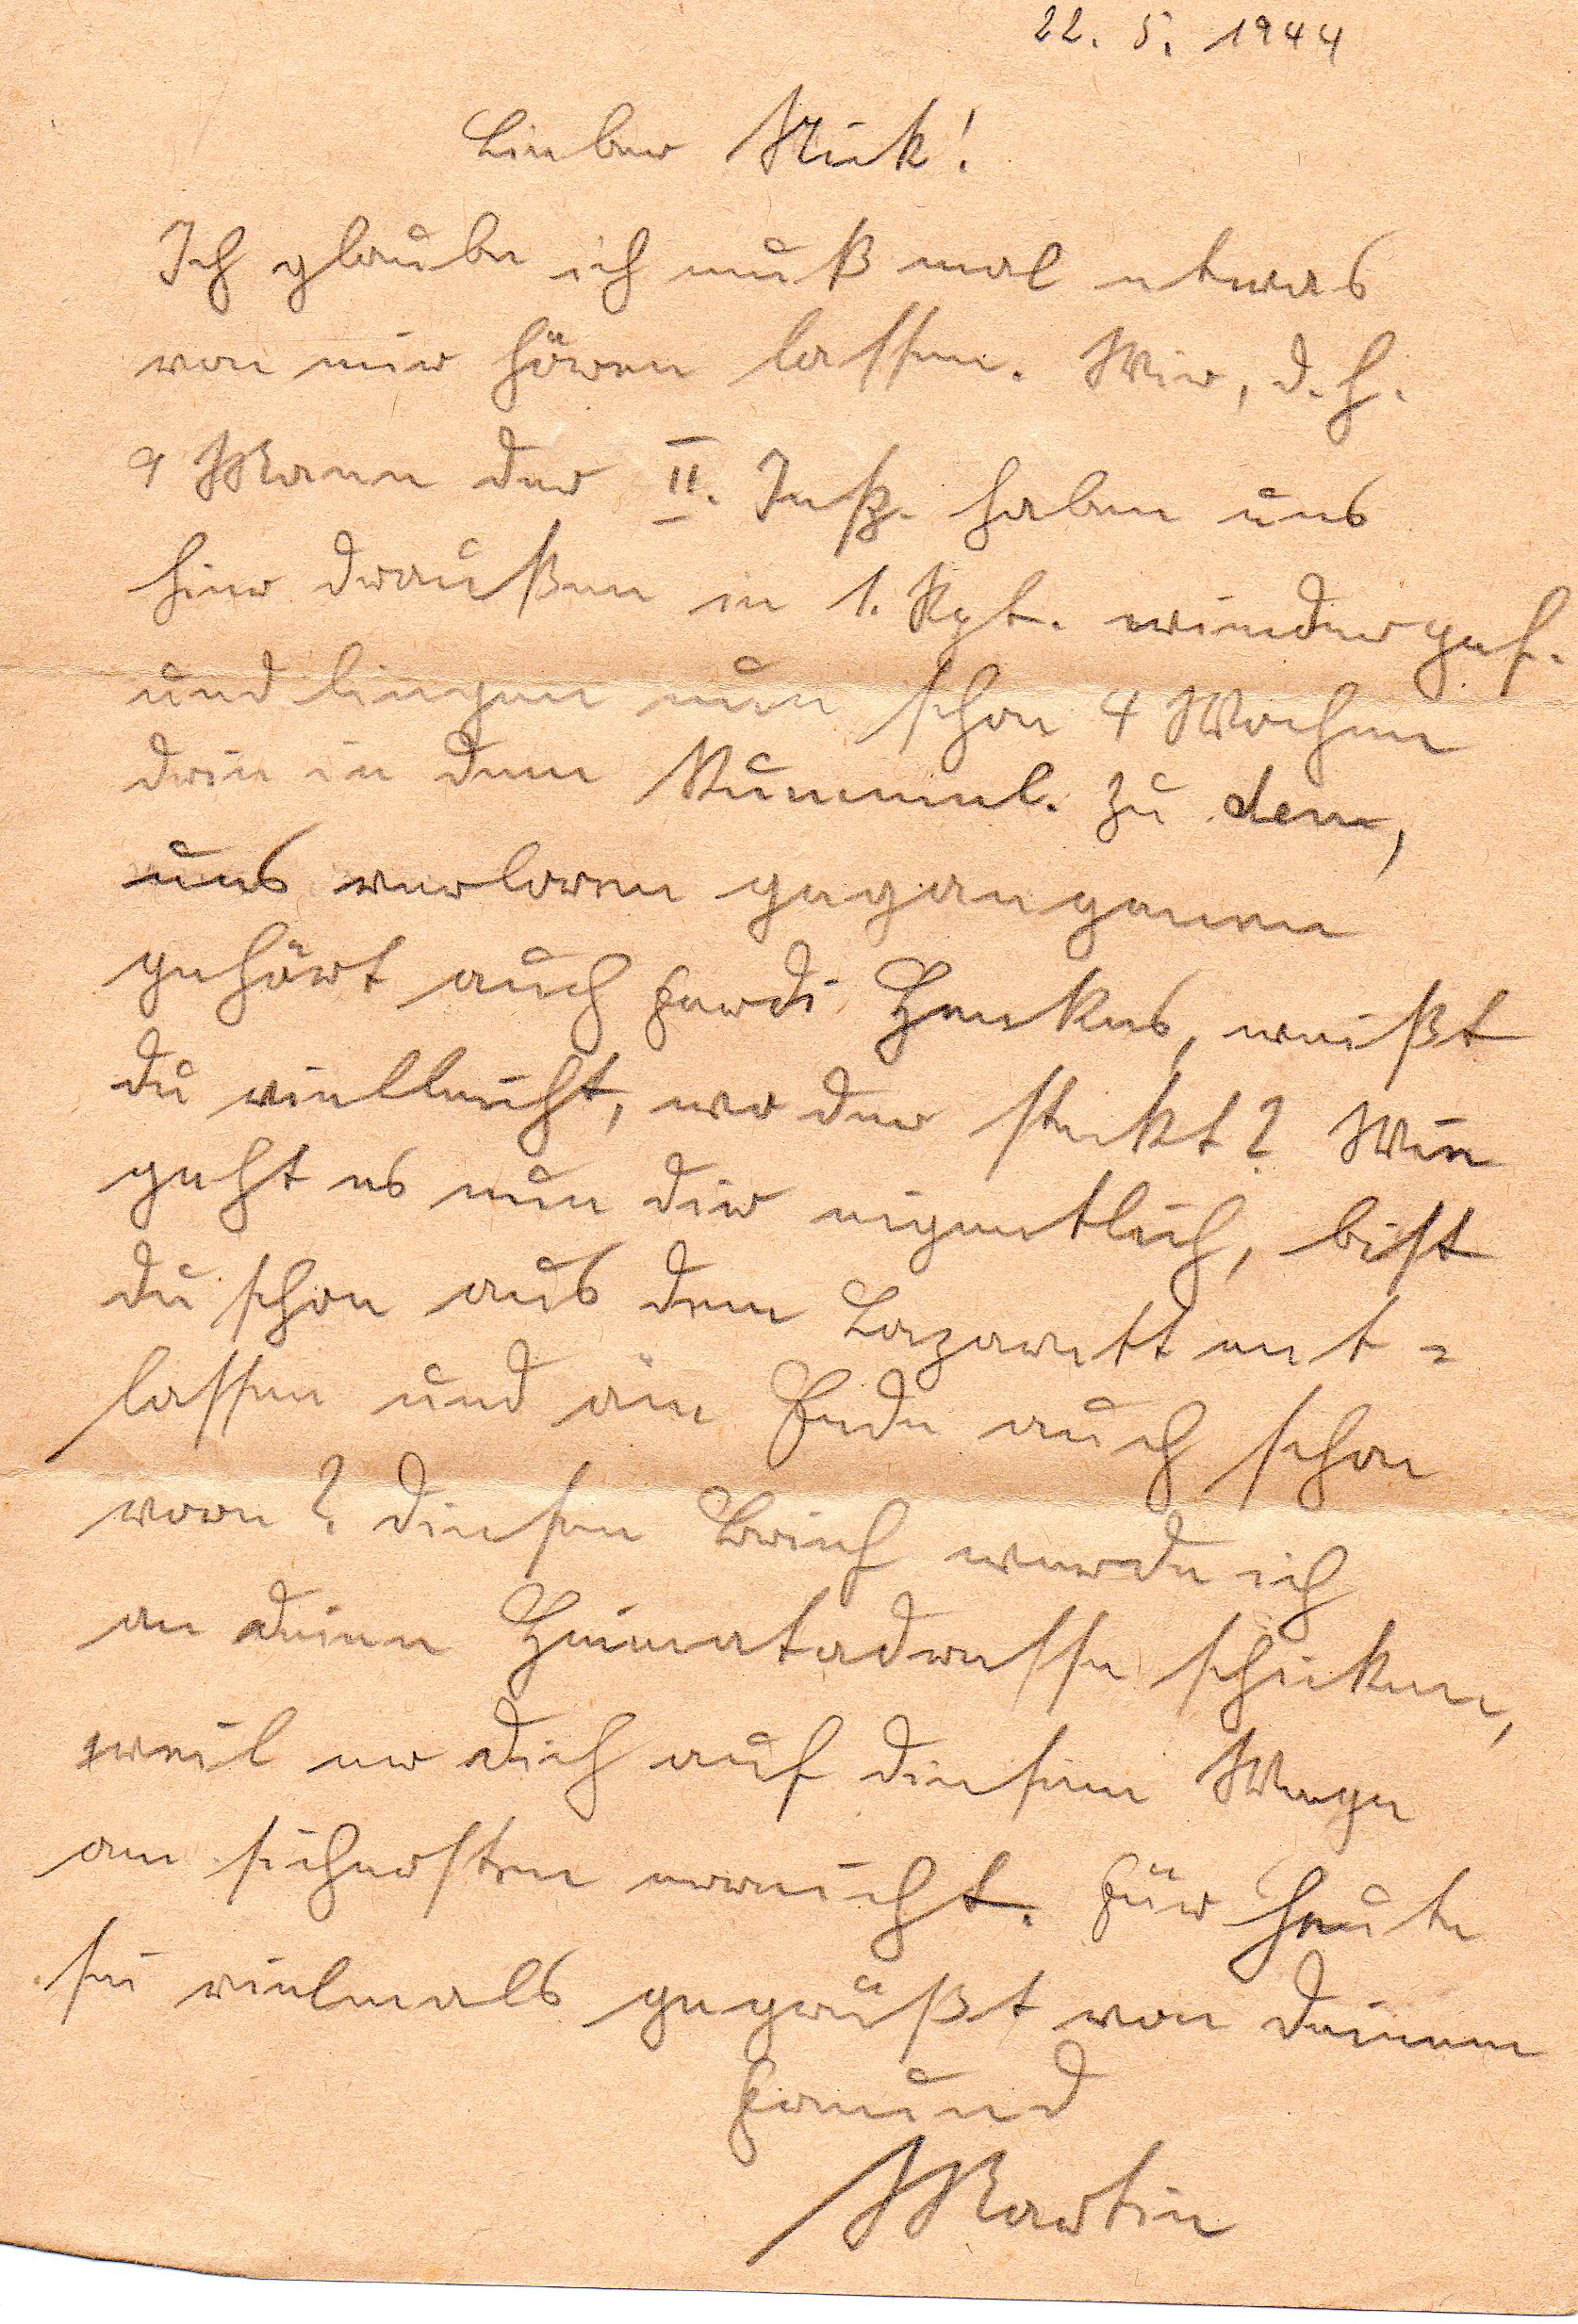 22. 5. 1944
Lieber Nick!
Ich glaube ich muß mal etwas
von mir hören lassen. Wir, d.h.
9 Mann der II. Insp. haben uns
hier draußen in 1. Rgt. wiedergef.
und liegen nun schon 4 Wochen
drin in dem Rummel. Zu den,
uns verloren gegangenen
gehört auch Ferdi Henkes, weißt
du vielleicht, wo der steckt? Wie
geht es nun dir eigentlich, bist
du schon aus dem Lazarett ent=
lassen und am Ende auch schon
vorn? Diesen Brief werde ich
an deine Heimatadresse schicken,
weil er dich auf diesem Wege
am sichersten erreicht. Für heute
sei vielmals gegrüßt von deinem
Freund
Martin